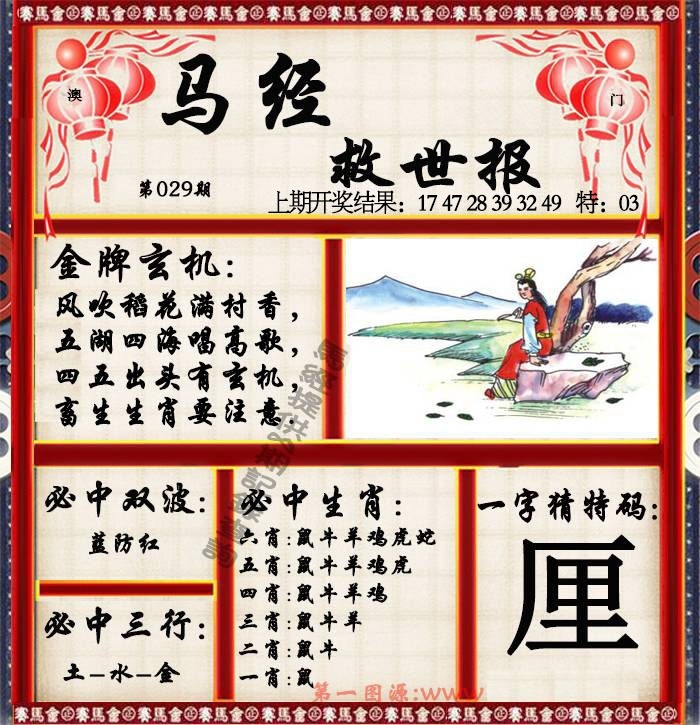 賽馬會㊣賽馬會㊣賽馬會㊣賽馬會㊣賽馬會㊣賽馬會㊣賽馬會㊣賽馬會
澳
门
马经
救世报
第029期
上期开奖结果：17 47 28 39 32 49 特：03
金牌玄机：
风吹稻花满村香，
五湖四海唱高歌，
四五出头有玄机，
畜生生肖要注意.
必中双波：
蓝防红
必中三行：
土-水-金
必中生肖：
六肖：鼠牛羊鸡虎蛇
五肖：鼠牛羊鸡虎
四肖：鼠牛羊鸡
三肖：鼠牛羊
二肖：鼠牛
一肖：鼠
一字猜特码：
厘
第一图源：www